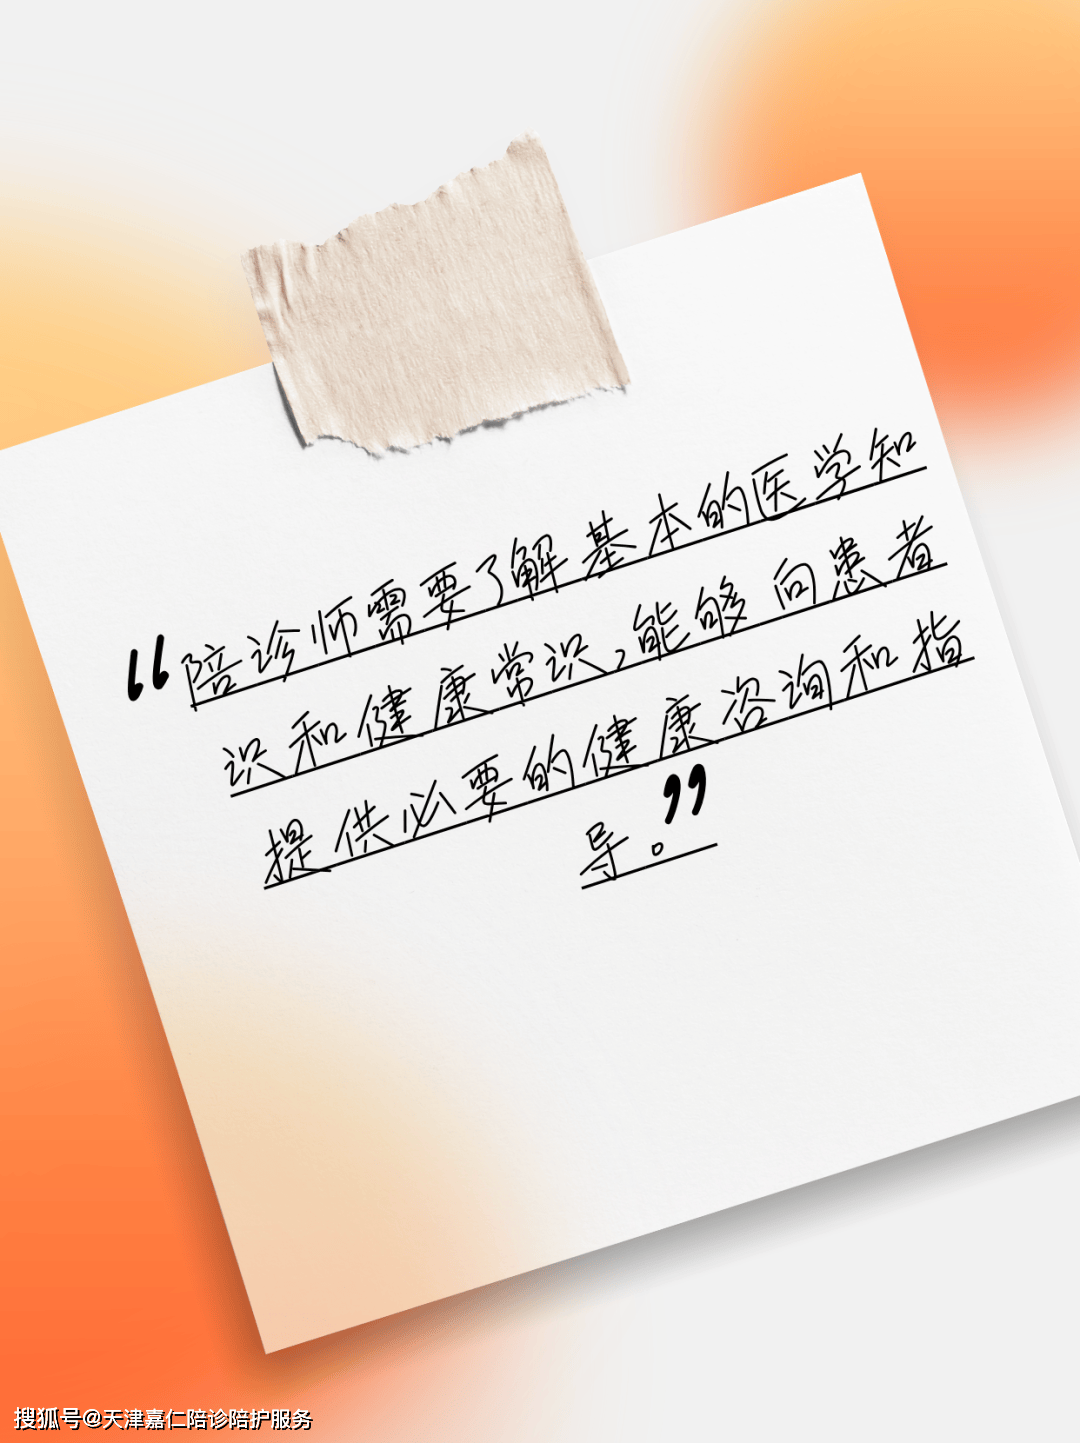 “陪诊师需要了解基本的医学知
识和健康常识,能够向患者
提供必要的健康咨询和指
导。”
搜狐号@天津嘉仁陪诊陪护服务